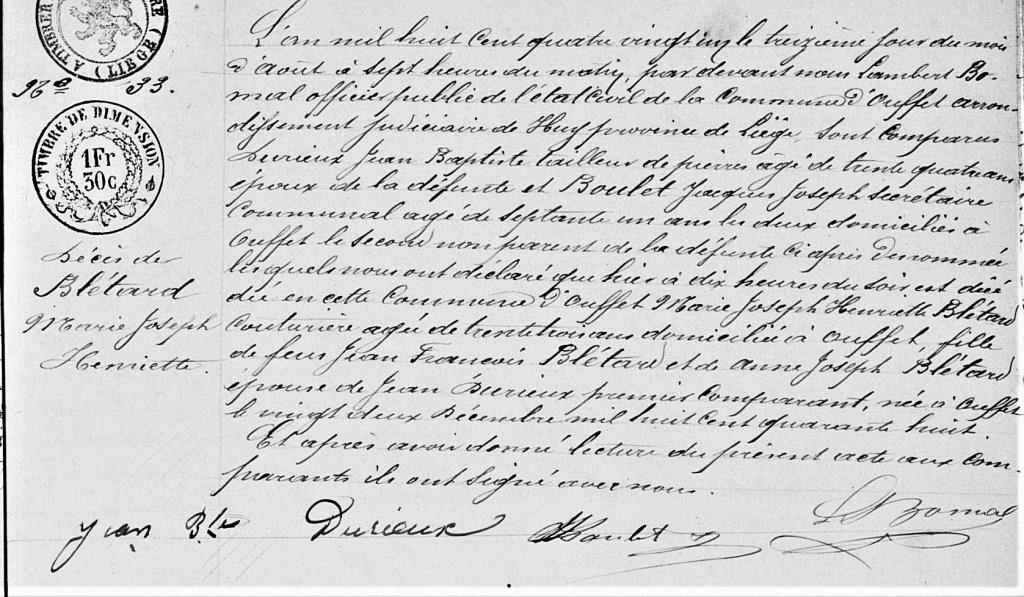 A TIMBRER
(LIÈGE)
N° 33.
TIMBRE DE DIMENSION
1Fr
30c
Décès de
Blétard
Marie Joseph
Henriette.
L'an mil huit cent quatre vingt un, le treizième jour du mois
d'août à sept heures du matin, par devant nous Lambert Bo-
mal officier public de l'état Civil de la Commune d'Ouffet arron-
dissement Judiciaire de Huy province de Liége, sont comparus
Durieux Jean Baptiste tailleur de pierres agé de trente quatre ans
époux de la défunte et Boulet Jacques Joseph secrétaire
Communal agé de septante un ans les deux domiciliés à
Ouffet le second non parent de la défunte ci après denommée
lesquels nous ont déclaré que hier à dix heures du soir est décé
dée en cette Commune d'Ouffet Marie Joseph Henriette Blétard
Couturière agée de trente trois ans domiciliée à Ouffet, fille
de feus Jean François Blétard et de Anne Joseph Blétard
épouse de Jean Durieux premier comparant, née à Ouffet
le vingt deux Décembre mil huit cent quarante huit.
Et après avoir donné lecture du présent acte aux com-
parants ils ont signé avec nous.
Jean Bte Durieux JJBoulet L Bomal